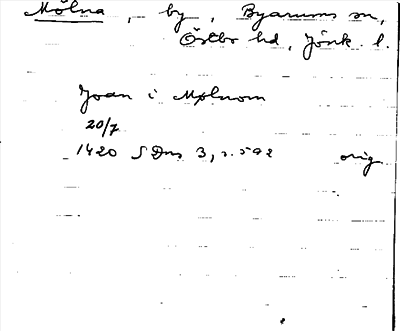 Mölna, by, Byarums sn,
Östbo hd, Jönk. l.
Joan i Mølnom
20/7
1420 SDns 3, s. 592 orig